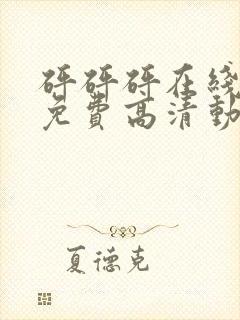 砰砰砰在线
免费高清动
夏德克